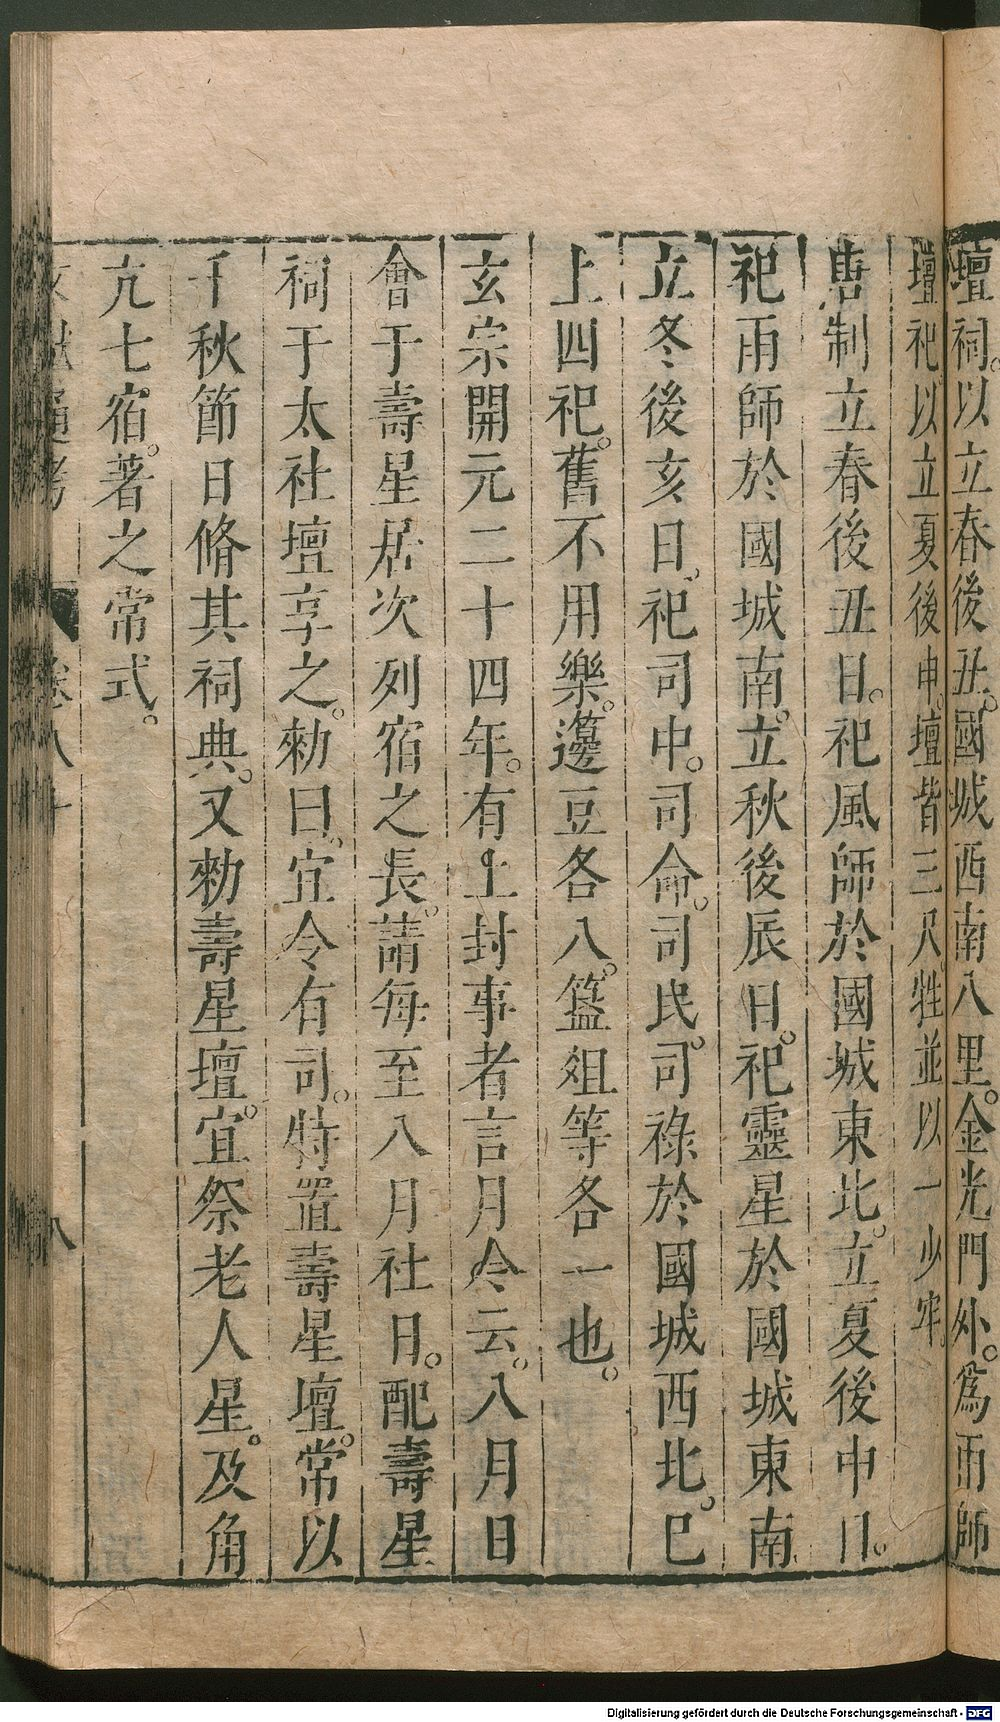 壇祠。以立春後丑。國城西南八里。金光門外。爲雨師
壇祀。以立夏後申。壇皆三尺。牲並以一少牢。
唐制立春後丑日。祀風師於國城東北。立夏後申日。
祀雨師於國城南。立秋後辰日。祀靈星於國城東南
立冬後亥日。祀司中。司命。司民。司祿於國城西北。已
上四祀。舊不用樂。籩豆各八。簋俎等各一也。
玄宗開元二十四年。有上封事者言月令云。八月日
會于壽星居次列宿之長。請每至八月社日。配壽星
祠于太社壇享之。勑曰。宜令有司。特置壽星壇。常以
千秋節日脩其祠典。又勑壽星壇。宜祭老人星。及角
亢七宿。著之常式。
文獻通考 卷八十 八
Digitalisierung gefördert durch die Deutsche Forschungsgemeinschaft - DFG